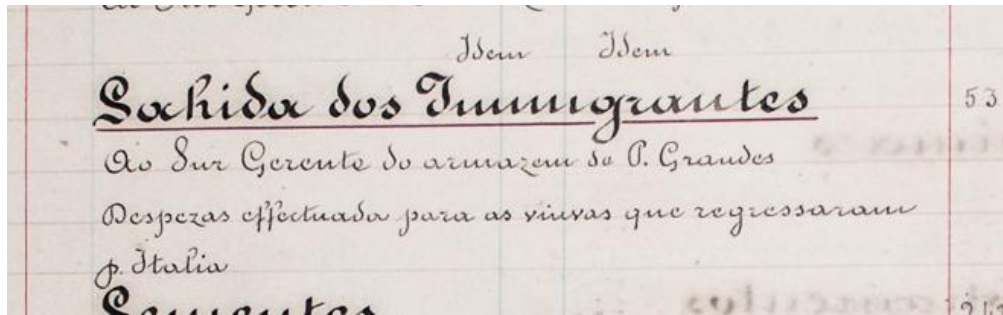 Idem Idem
Sahida dos Immigrantes 53
Ao Snr Gerente do armazem de P. Grandes
Despezas effectuada para as viuvas que regressaram
p. Italia
Sementes